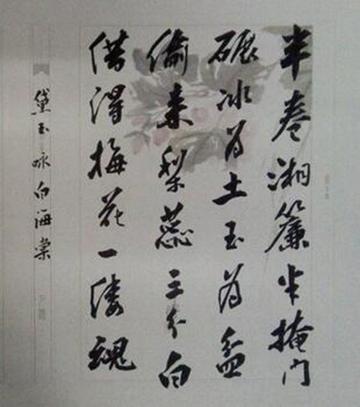 半卷湘簾半掩门
碾冰为土玉为盆
偷来梨蕊三分白
借得梅花一缕魂
黛玉咏白海棠